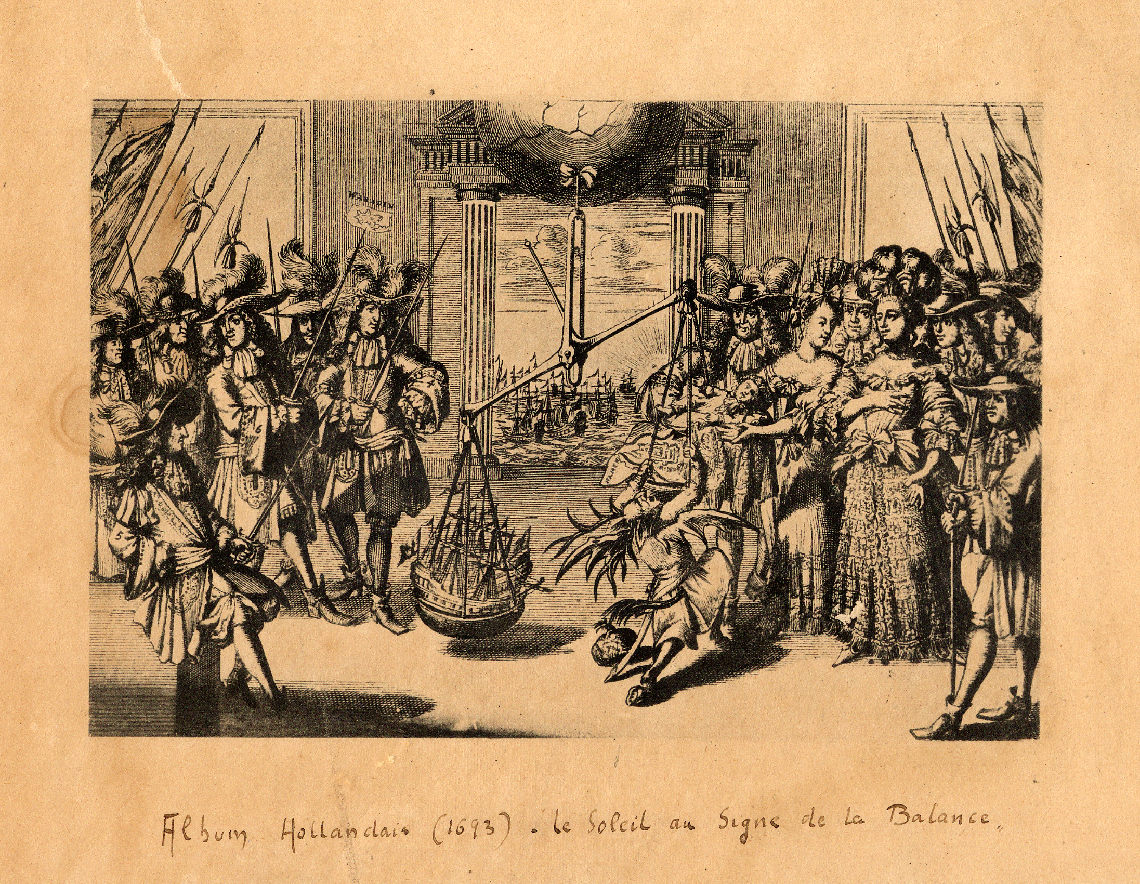 Album Hollandais (1693). le Soleil au Signe de la Balance.